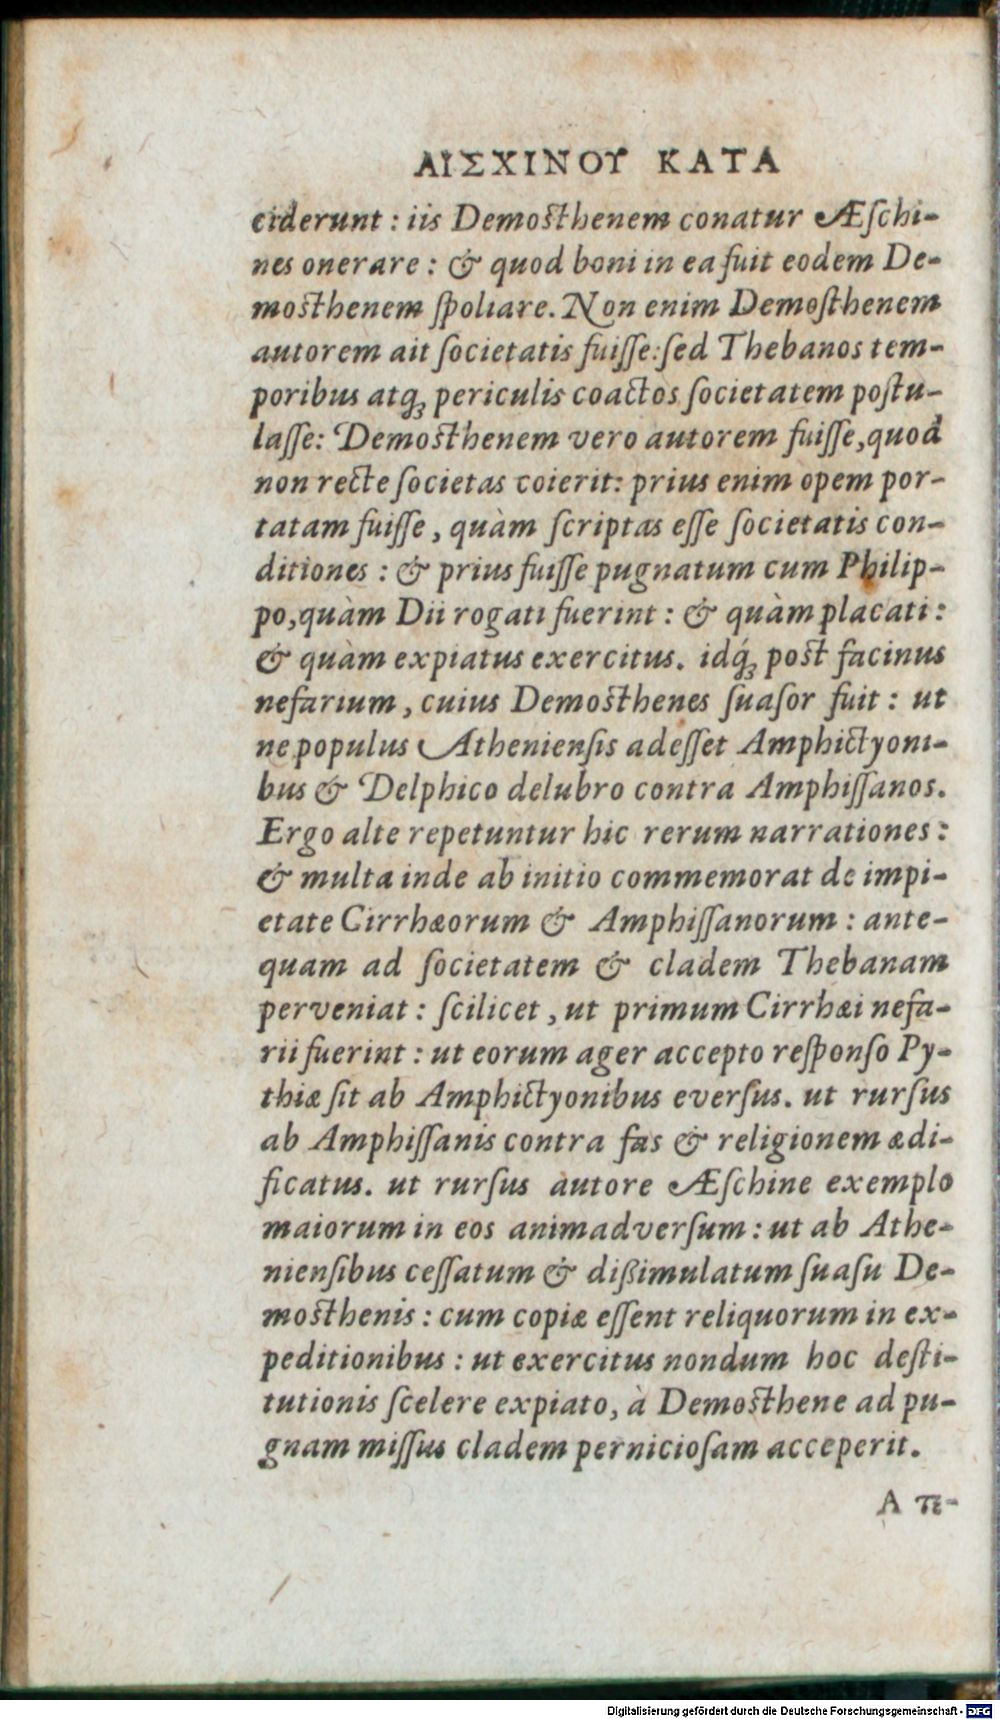 ΑΙΣΧΙΝΟΥ ΚΑΤΑ
ciderunt : iis Demosthenem conatur Æſchi-
nes onerare : & quod boni in ea fuit eodem De-
mosthenem ſpoliare. Non enim Demoſthenem
autorem ait ſocietatis fuiſſe: ſed Thebanos tem-
poribus atqꝫ periculis coactos ſocietatem poſtu-
laſſe: Demosthenem vero autorem fuiſſe, quod
non recte ſocietas coierit: prius enim opem por-
tatam fuiſſe, quàm ſcriptas eſſe ſocietatis con-
ditiones : & prius fuiſſe pugnatum cum Philip-
po, quàm Dii rogati fuerint : & quàm placati :
& quàm expiatus exercitus. idq́ꝫ post facinus
nefarium, cuius Demosthenes ſuaſor fuit : ut
ne populus Athenienſis adeſſet Amphictyoni-
bus & Delphico delubro contra Amphiſſanos.
Ergo alte repetuntur hic rerum narrationes :
& multa inde ab initio commemorat de impi-
etate Cirrhæorum & Amphiſſanorum : ante-
quam ad ſocietatem & cladem Thebanam
perveniat : ſcilicet, ut primum Cirrhæi nefa-
rii fuerint : ut eorum ager accepto reſponſo Py-
thiæ ſit ab Amphictyonibus everſus. ut rurſus
ab Amphiſſanis contra fas & religionem ædi-
ficatus. ut rurſus autore Æſchine exemplo
maiorum in eos animadverſum : ut ab Athe-
nienſibus ceſſatum & dißimulatum ſuaſu De-
mosthenis : cum copiæ eſſent reliquorum in ex-
peditionibus : ut exercitus nondum hoc deſti-
tutionis ſcelere expiato, à Demosthene ad pu-
gnam miſſus cladem pernicioſam acceperit.
Α πε-
Digitalisierung gefördert durch die Deutsche Forschungsgemeinschaft - DFG